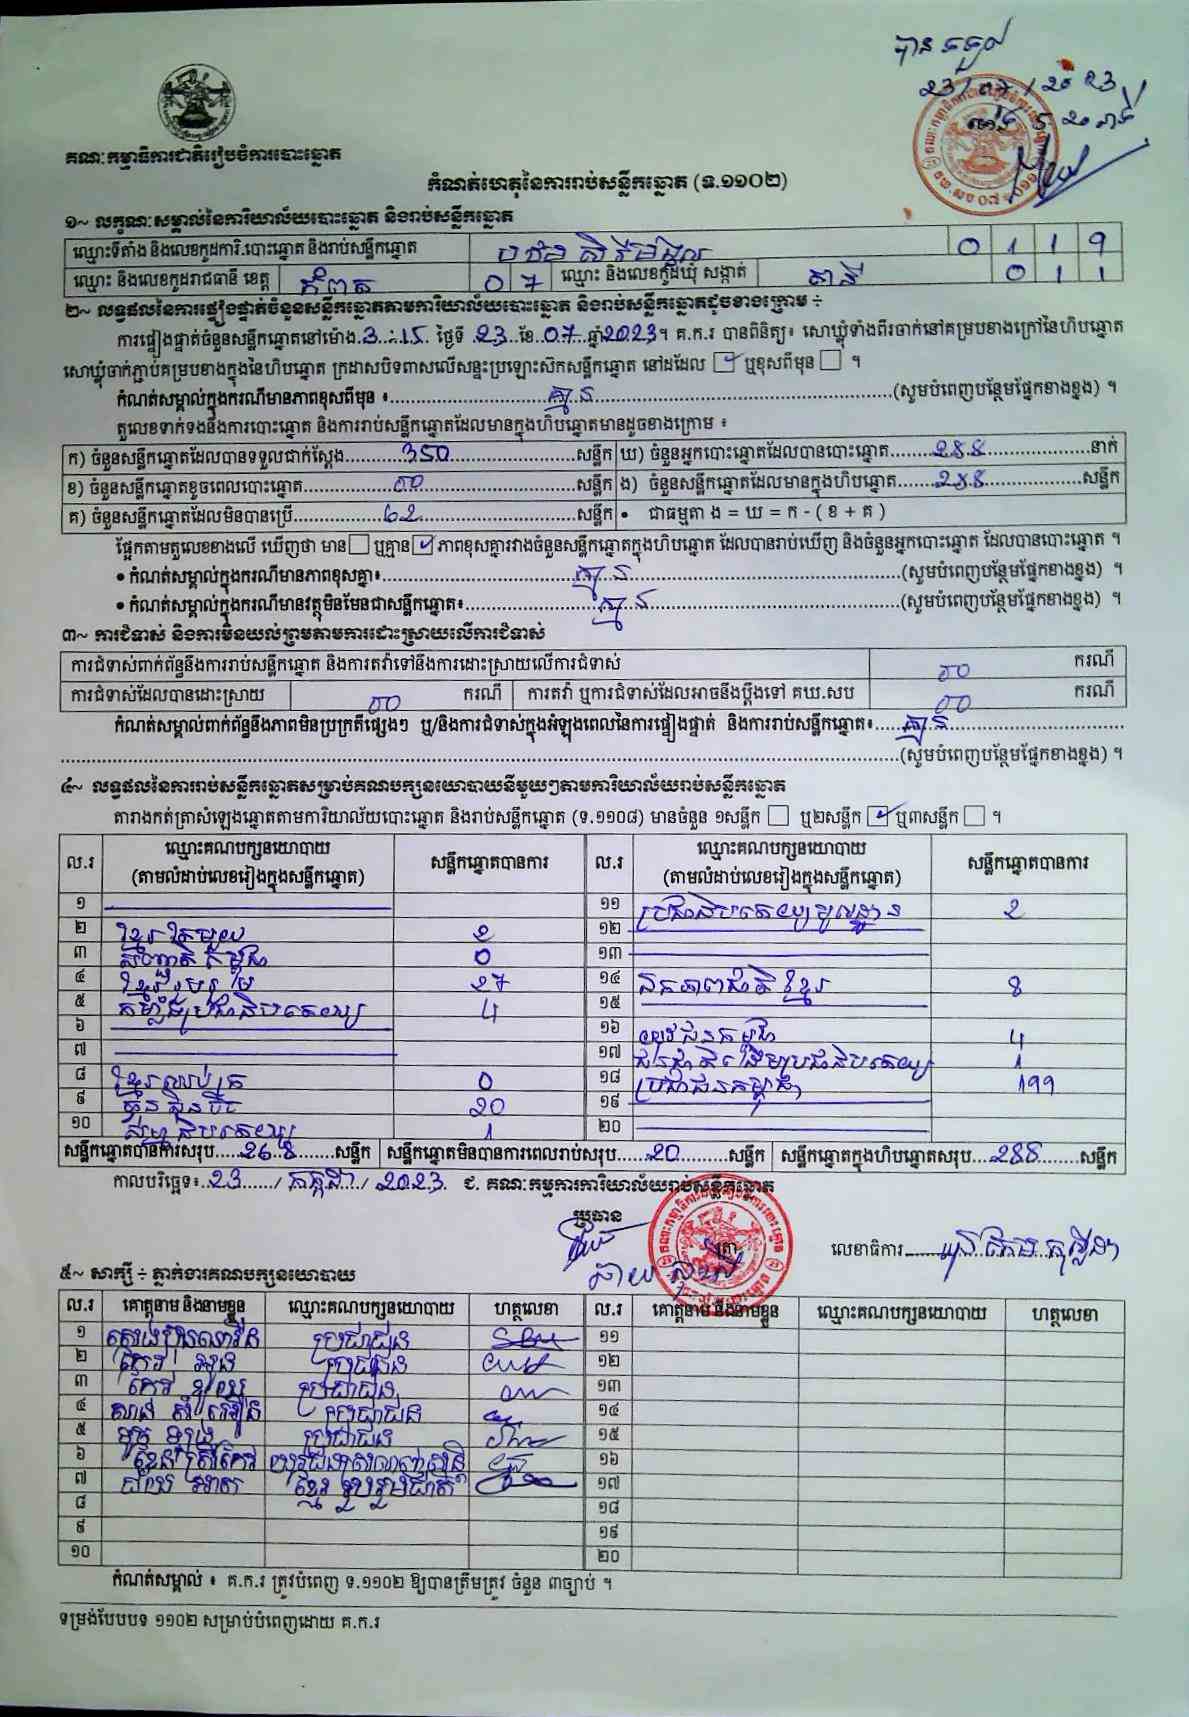 បានទទួល
23/07/2023
ម៉ោង 5 20 នាទី
គណៈកម្មាធិការជាតិរៀបចំការបោះឆ្នោត
កំណត់ហេតុនៃការរាប់សន្លឹកឆ្នោត (ទ.១១០២)
១~ លក្ខណៈសម្គាល់នៃការិយាល័យបោះឆ្នោត និងរាប់សន្លឹកឆ្នោត
ឈ្មោះទីតាំង និងលេខកូដការិ.បោះឆ្នោត និងរាប់សន្លឹកឆ្នោត 0119
ឈ្មោះ និងលេខកូដរាជធានី ខេត្ត កំពត 07 ឈ្មោះ និងលេខកូដឃុំ សង្កាត់ តានី 011
២~ លទ្ធផលនៃការផ្ទៀងផ្ទាត់ចំនួនសន្លឹកឆ្នោតតាមការិយាល័យបោះឆ្នោត និងរាប់សន្លឹកឆ្នោតដូចខាងក្រោម ÷
ការផ្ទៀងផ្ទាត់ចំនួនសន្លឹកឆ្នោតនៅម៉ោង 3:15 ថ្ងៃទី 23 ខែ 07 ឆ្នាំ 2023។ គ.ក.រ បានពិនិត្យ៖ សោឃ្លុំទាំងពីរចាក់នៅគម្របខាងក្រៅនៃហិបឆ្នោត
សោឃ្លុំចាក់ភ្ជាប់គម្របខាងក្នុងនៃហិបឆ្នោត ក្រដាសបិទពាសលើសន្ទះប្រឡោះស៊កសន្លឹកឆ្នោត នៅដដែល ☑ ឬខុសពីមុន ☐ ។
កំណត់សម្គាល់ក្នុងករណីមានភាពខុសពីមុន ៖ គ្មាន (សូមបំពេញបន្ថែមផ្នែកខាងខ្នង) ។
តួលេខទាក់ទងនឹងការបោះឆ្នោត និងការរាប់សន្លឹកឆ្នោតដែលមានក្នុងហិបឆ្នោតមានដូចខាងក្រោម ៖
ក) ចំនួនសន្លឹកឆ្នោតដែលបានទទួលជាក់ស្តែង 350 សន្លឹក ឃ) ចំនួនអ្នកបោះឆ្នោតដែលបានបោះឆ្នោត 288 នាក់
ខ) ចំនួនសន្លឹកឆ្នោតខូចពេលបោះឆ្នោត 00 សន្លឹក ង) ចំនួនសន្លឹកឆ្នោតដែលមានក្នុងហិបឆ្នោត 288 សន្លឹក
គ) ចំនួនសន្លឹកឆ្នោតដែលមិនបានប្រើ 62 សន្លឹក • ជាធម្មតា ង = ឃ = ក - ( ខ + គ )
ផ្អែកតាមតួលេខខាងលើ ឃើញថា មាន ☐ ឬគ្មាន ☑ ភាពខុសគ្នារវាងចំនួនសន្លឹកឆ្នោតក្នុងហិបឆ្នោត ដែលបានរាប់ឃើញ និងចំនួនអ្នកបោះឆ្នោត ដែលបានបោះឆ្នោត ។
• កំណត់សម្គាល់ក្នុងករណីមានភាពខុសគ្នា៖ គ្មាន (សូមបំពេញបន្ថែមផ្នែកខាងខ្នង) ។
• កំណត់សម្គាល់ក្នុងករណីមានវត្ថុមិនមែនជាសន្លឹកឆ្នោត៖ គ្មាន (សូមបំពេញបន្ថែមផ្នែកខាងខ្នង) ។
៣~ ការជំទាស់ និងការមិនយល់ព្រមតាមការដោះស្រាយលើការជំទាស់
ការជំទាស់ពាក់ព័ន្ធនឹងការរាប់សន្លឹកឆ្នោត និងការតវ៉ាទៅនឹងការដោះស្រាយលើការជំទាស់ 00 ករណី
ការជំទាស់ដែលបានដោះស្រាយ 00 ករណី ការតវ៉ា ឬការជំទាស់ដែលអាចនឹងប្តឹងទៅ គឃ.សប 00 ករណី
កំណត់សម្គាល់ពាក់ព័ន្ធនឹងភាពមិនប្រក្រតីផ្សេងៗ ឬ/និងការជំទាស់ក្នុងអំឡុងពេលនៃការផ្ទៀងផ្ទាត់ និងការរាប់សន្លឹកឆ្នោត៖ គ្មាន
(សូមបំពេញបន្ថែមផ្នែកខាងខ្នង) ។
៤~ លទ្ធផលនៃការរាប់សន្លឹកឆ្នោតសម្រាប់គណបក្សនយោបាយនីមួយៗតាមការិយាល័យរាប់សន្លឹកឆ្នោត
តារាងកត់ត្រាសំឡេងឆ្នោតតាមការិយាល័យបោះឆ្នោត និងរាប់សន្លឹកឆ្នោត (ទ.១១០៨) មានចំនួន ១សន្លឹក ☐ ឬ២សន្លឹក ☑ ឬ៣សន្លឹក ☐ ។
ល.រ ឈ្មោះគណបក្សនយោបាយ (តាមលំដាប់លេខរៀងក្នុងសន្លឹកឆ្នោត) សន្លឹកឆ្នោតបានការ ល.រ ឈ្មោះគណបក្សនយោបាយ (តាមលំដាប់លេខរៀងក្នុងសន្លឹកឆ្នោត) សន្លឹកឆ្នោតបានការ
១ ១១ ប្រជាធិបតេយ្យមូលដ្ឋាន 2
២ ខ្មែរតែមួយ 2 ១២
៣ សញ្ជាតិកម្ពុជា 0 ១៣
៤ ខ្មែររួបរួម 27 ១៤ ឯកភាពជាតិខ្មែរ 8
៥ កម្លាំងប្រជាធិបតេយ្យ 4 ១៥
៦ ១៦ យុវជនកម្ពុជា 4
៧ ១៧ ជនជាតិដើមប្រជាធិបតេយ្យ 1
៨ ខ្មែរឈប់ក្រ 0 ១៨ ប្រជាជនកម្ពុជា 199
៩ ហ៊្វុនស៊ិនប៉ិច 20 ១៩
១០ សំបុកឃ្មុំ 1 ២០
សន្លឹកឆ្នោតបានការសរុប 268 សន្លឹក សន្លឹកឆ្នោតមិនបានការពេលរាប់សរុប 20 សន្លឹក សន្លឹកឆ្នោតក្នុងហិបឆ្នោតសរុប 288 សន្លឹក
កាលបរិច្ឆេទ៖ 23 / កក្កដា / 2023 ជ. គណៈកម្មការការិយាល័យរាប់សន្លឹកឆ្នោត
ប្រធាន
ត្រា លេខាធិការ
៥~ សាក្សី ÷ ភ្នាក់ងារគណបក្សនយោបាយ
ល.រ គោត្តនាម និងនាមខ្លួន ឈ្មោះគណបក្សនយោបាយ ហត្ថលេខា ល.រ គោត្តនាម និងនាមខ្លួន ឈ្មោះគណបក្សនយោបាយ ហត្ថលេខា
១ ប្រជាជន ១១
២ ប្រជាជន ១២
៣ ប្រជាជន ១៣
៤ ប្រជាជន ១៤
៥ ប្រជាជន ១៥
៦ ១៦
៧ ខ្មែររួបរួមជាតិ ១៧
៨ ១៨
៩ ១៩
១០ ២០
កំណត់សម្គាល់ ៖ គ.ក.រ ត្រូវបំពេញ ទ.១១០២ ឱ្យបានត្រឹមត្រូវ ចំនួន ៣ច្បាប់ ។
ទម្រង់បែបបទ ១១០២ សម្រាប់បំពេញដោយ គ.ក.រ